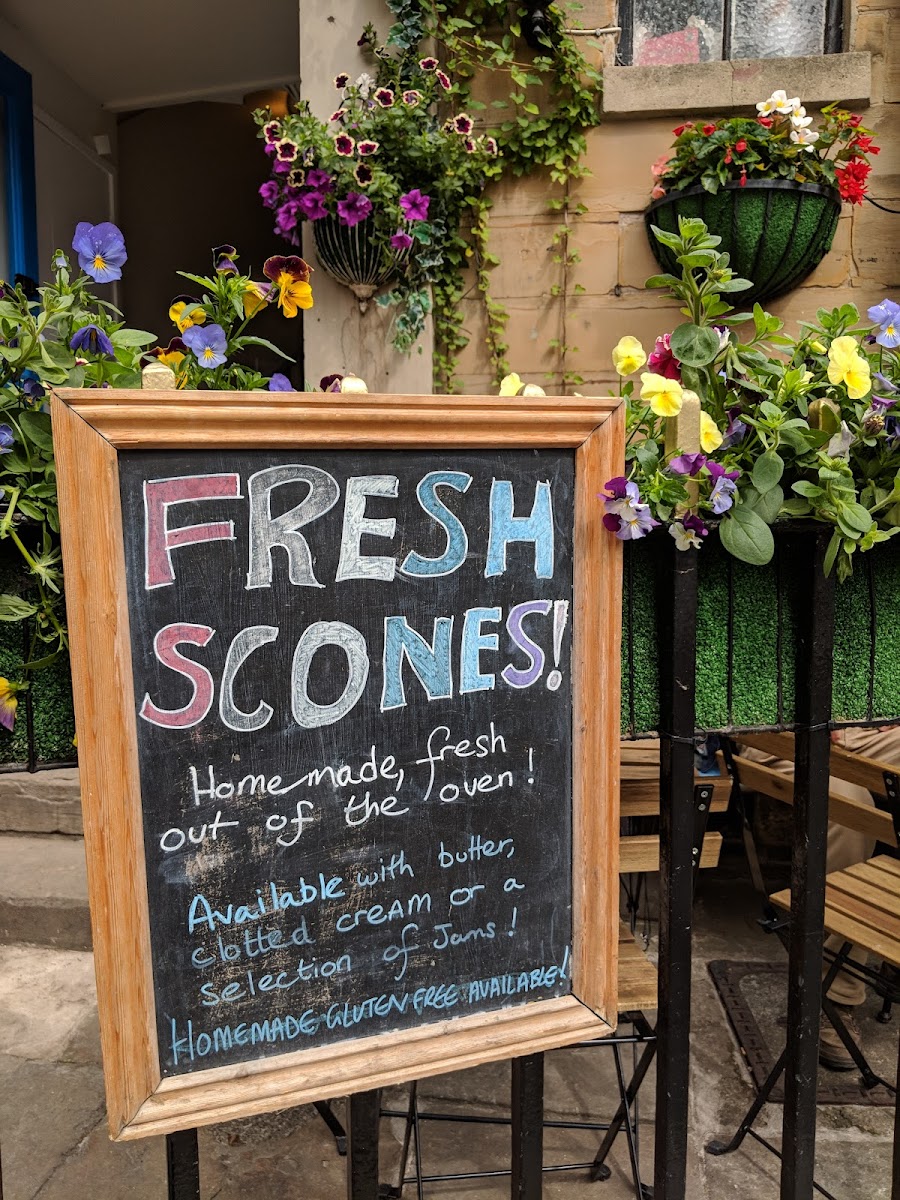 FRESH
SCONES!
Homemade, fresh
out of the oven!
Available with butter,
clotted cream or a
selection of Jams!
HOMEMADE GLUTEN FREE AVAILABLE!